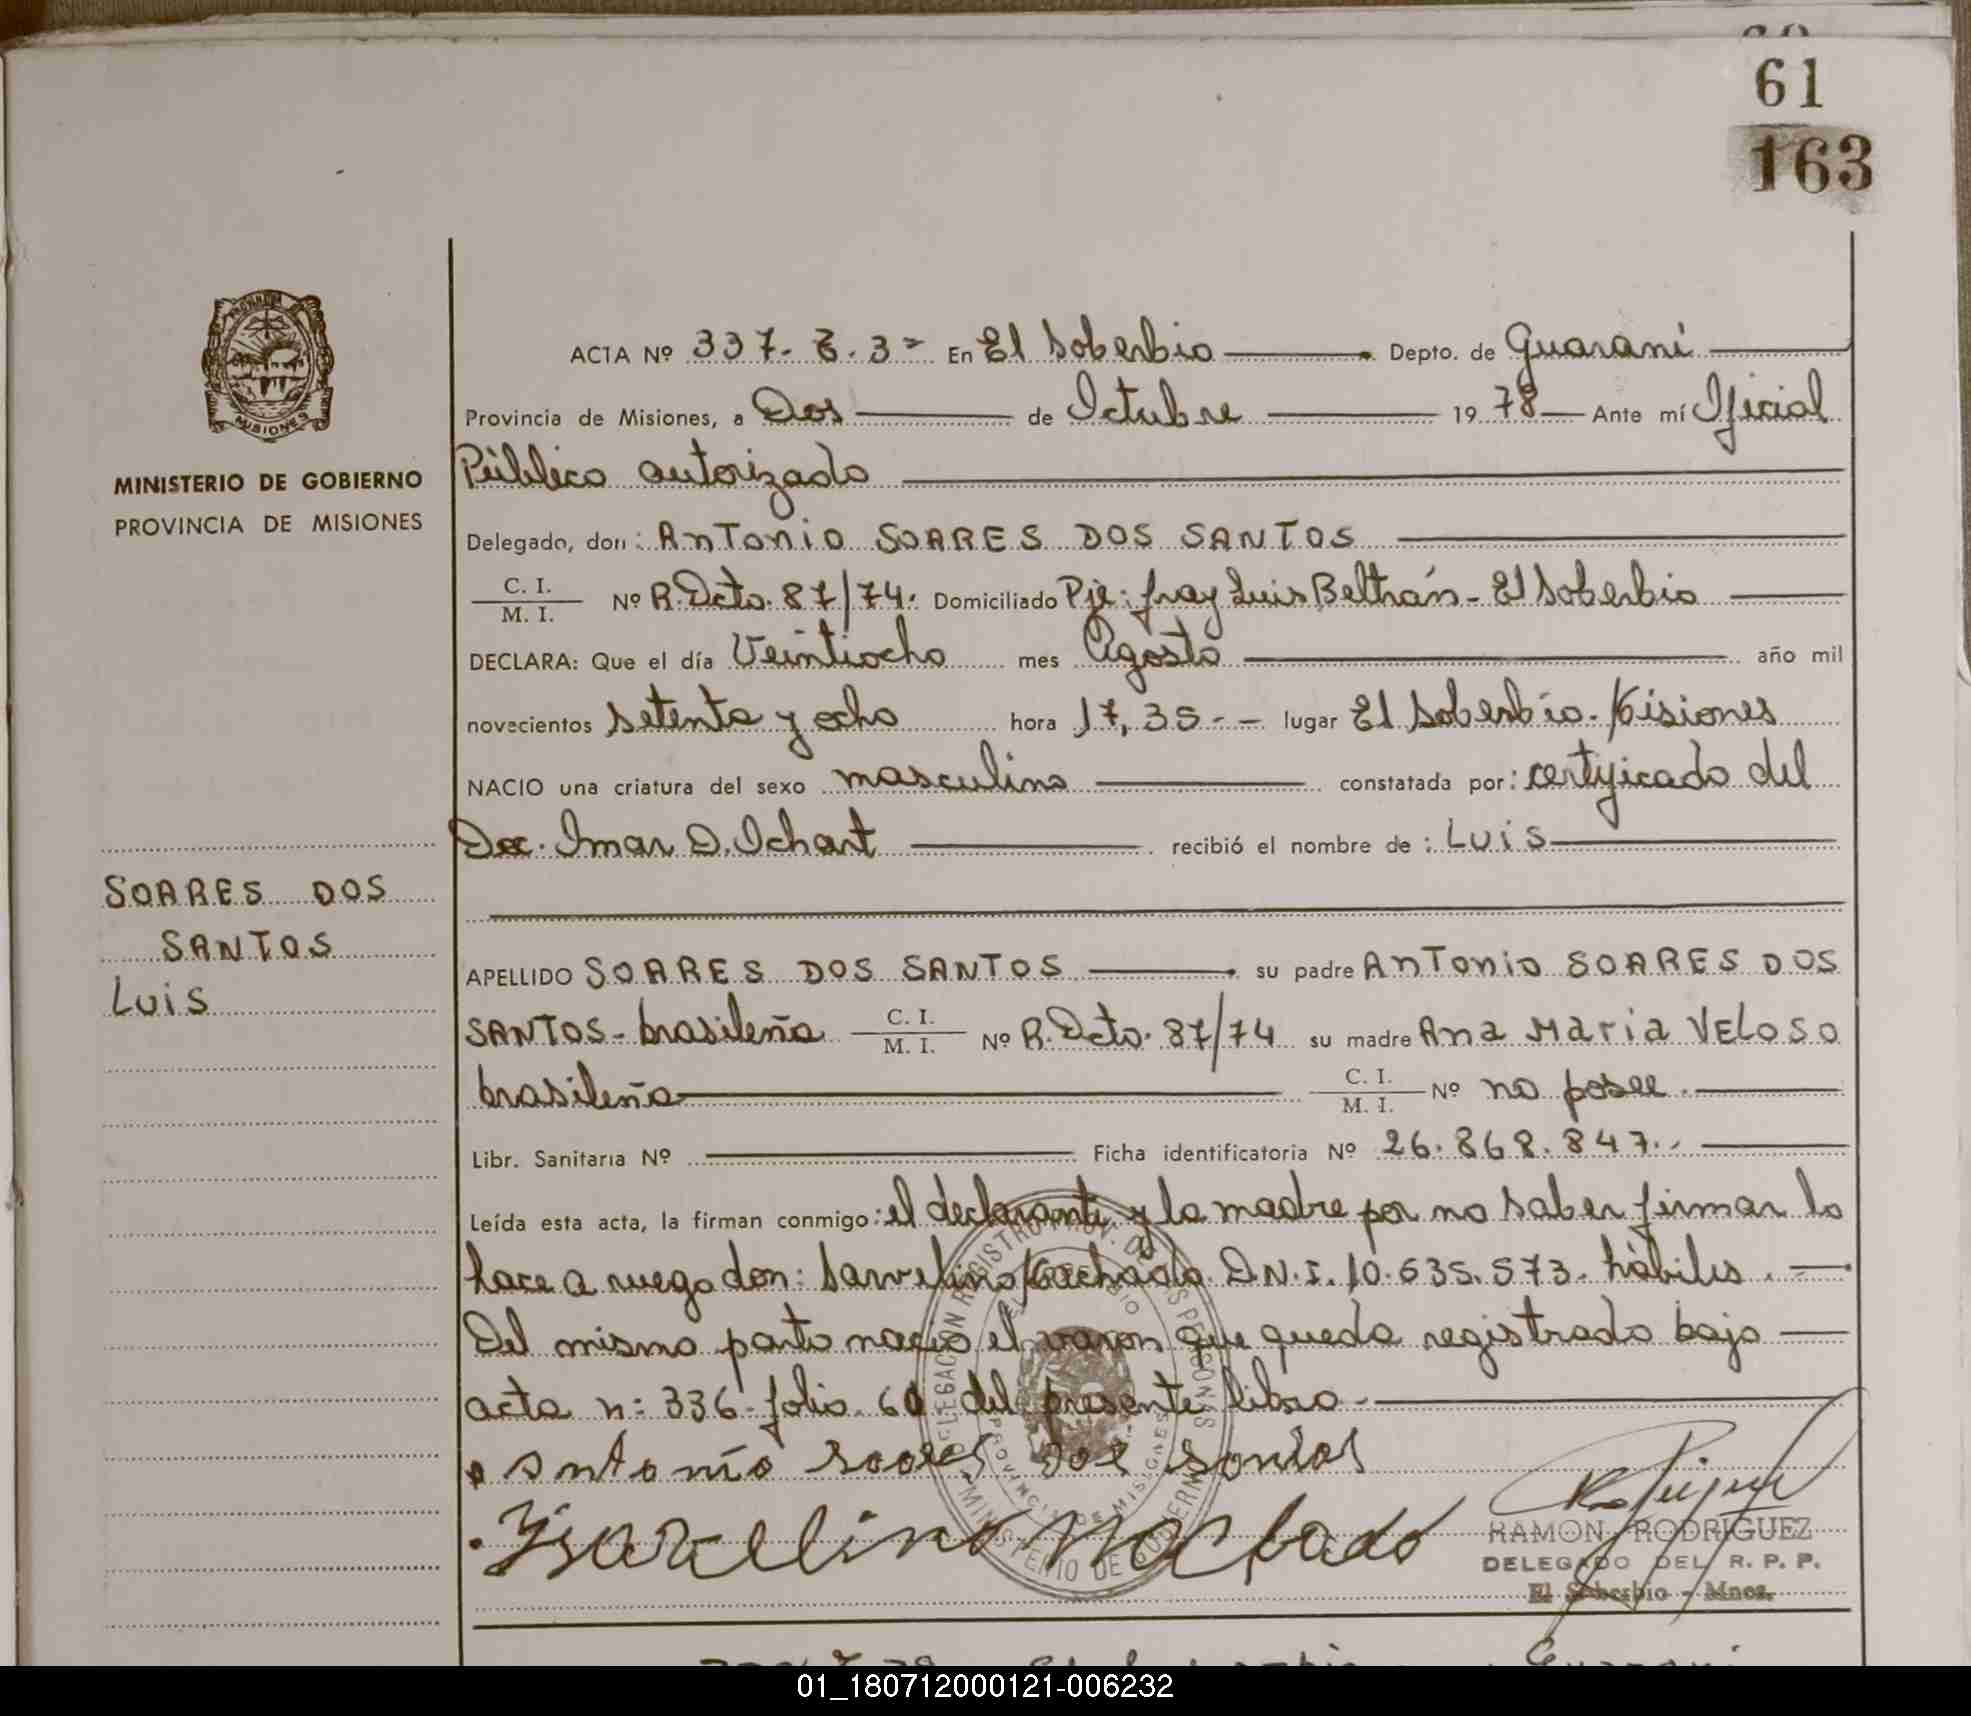 61
163
ACTA Nº 337. T. 3= En El Soberbio Depto. de Guaraní
Provincia de Misiones, a Dos de Octubre 1978 Ante mí Oficial
Público autorizado
MINISTERIO DE GOBIERNO
PROVINCIA DE MISIONES
MISIONES
Delegado, don: AnTonio SOARES DOS SANTOS
C. I.
M. I. Nº R. Dcto. 87/74. Domiciliado Pje: fray Luis Beltrán - El Soberbio
DECLARA: Que el día Veintiocho mes Agosto año mil
novecientos setenta y ocho hora 17,35.- lugar El Soberbio. Misiones
NACIO una criatura del sexo masculino constatada por: certificado del
Doc. Imar D. Ichart recibió el nombre de: Luis
SOARES DOS
SANTOS
Luis
APELLIDO SOARES DOS SANTOS su padre AnTonio SOARES DOS
SANTOS - brasileña C. I.
M. I. Nº R. Dcto. 87/74 su madre Ana Maria VELOSO
brasileña C. I.
M. I. Nº no posee.
Libr. Sanitaria Nº Ficha identificatoria Nº 26.868.847.
Leída esta acta, la firman conmigo: el declarante y la madre por no saber firmar lo
hace a ruego don: Machado D.N.I. 10.635.573. hábiles.
Del mismo parto nació el varon que queda registrado bajo
acta n: 336 folio 60 del presente libro.-
Antonio soares dos santos
Machado
RAMON RODRIGUEZ
DELEGADO DEL R. P. P.
El Soberbio - Mnes.
DELEGACION REGISTRO PROV. DE LAS PERSONAS
EL SOBERBIO
PROVINCIA DE MISIONES
MINISTERIO DE GOBIERNO
01_180712000121-006232